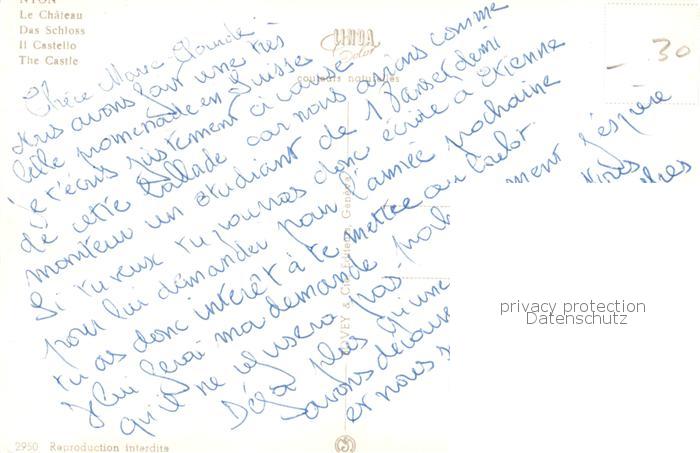 NYON
Le Château
Das Schloss
Il Castello
The Castle
LINDA
Color
couleurs naturelles
- 30
Chère Marie-Claude
Nous avons fait une très
belle promenade en Suisse
je t'écris justement à cause
de cette ballade car nous avons comme
moniteur un étudiant de 1 Panser demi
Si tu veux tu pourras donc écrire à Etienne
pour lui demander pour l'année prochaine
tu as donc intérêt à te mettre au boulot.
je lui ferai ma demande
qu'il ne refusera pas.
Déjà plus qu'une
savons
et nous
ment j'espère
VEY & Cie, Editeurs, Genève
privacy protection
Datenschutz
2950 Reproduction interdite